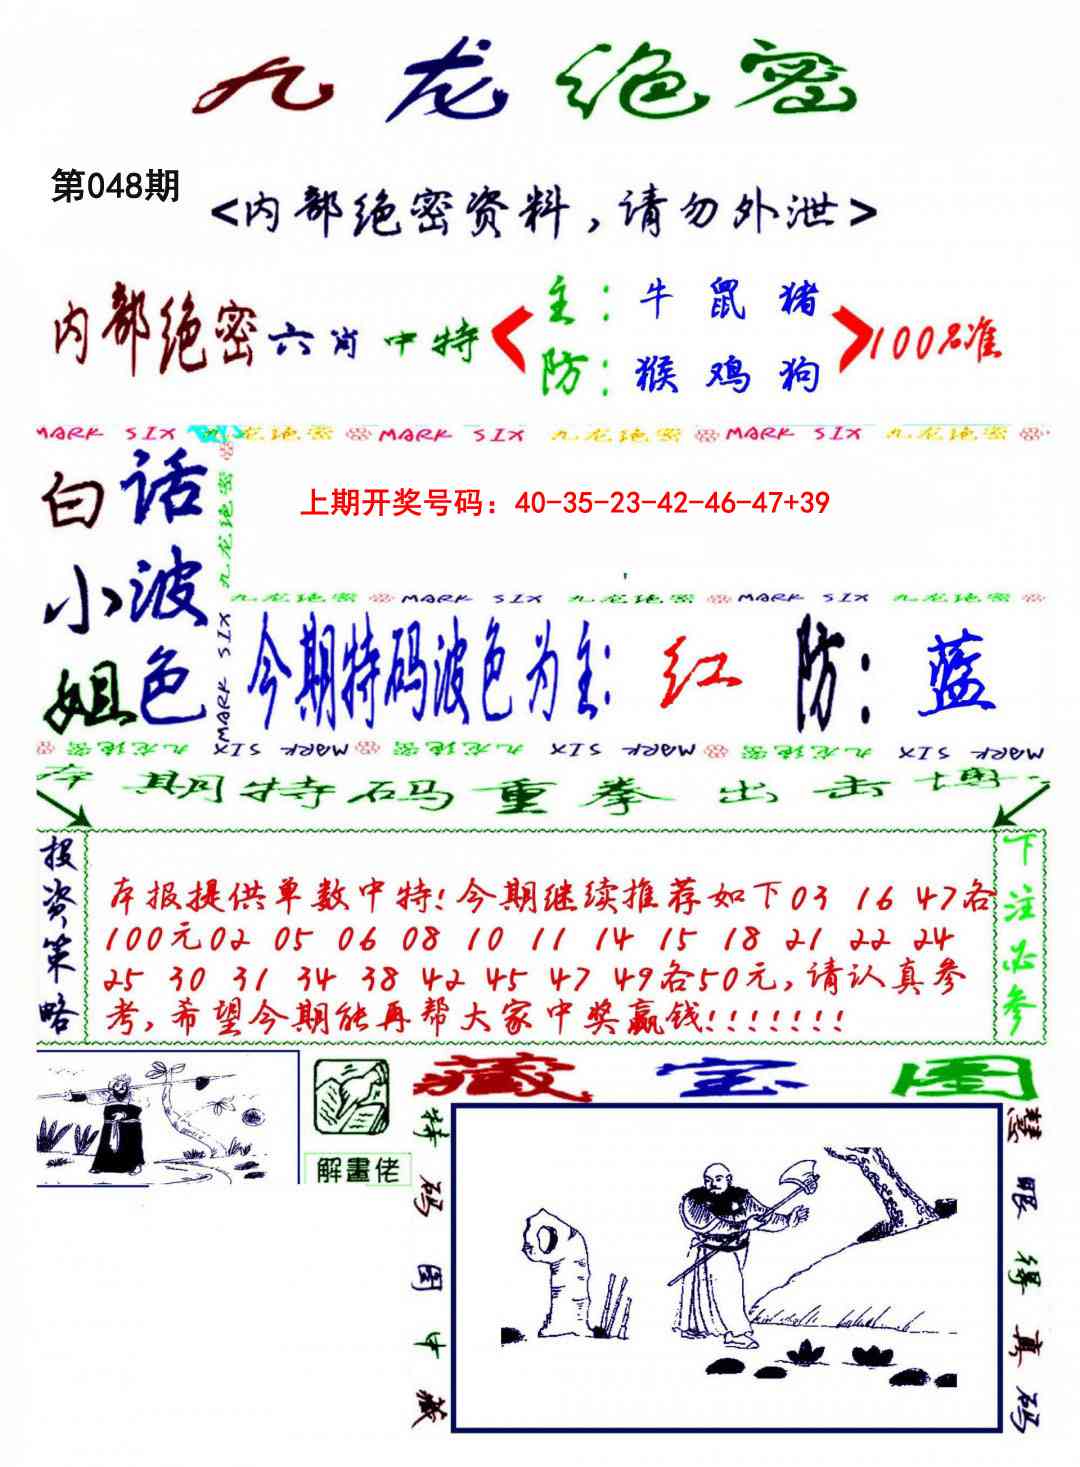 九龙绝密
第048期
<内部绝密资料,请勿外泄>
内部绝密六肖中特
主：牛 鼠 猪
防：猴 鸡 狗
100%准
MARK SIX 九龙绝密 MARK SIX 九龙绝密 MARK SIX 九龙绝密
白话
小波
姐色
九龙绝密
MARK SIX
上期开奖号码：40-35-23-42-46-47+39
九龙绝密 MARK SIX 九龙绝密 MARK SIX 九龙绝密
今期特码波色为主：红 防：蓝
九龙绝密 MARK SIX 九龙绝密 MARK SIX 九龙绝密 MARK SIX
本期特码重拳出击博
投资策略
本报提供单数中特!今期继续推荐如下03 16 47各
100元02 05 06 08 10 11 14 15 18 21 22 24
25 30 31 34 38 42 45 47 49各50元,请认真参
考,希望今期能再帮大家中奖赢钱!!!!!!!
下注必参
解畫佬
藏宝图
特码图中藏
慧眼得真码